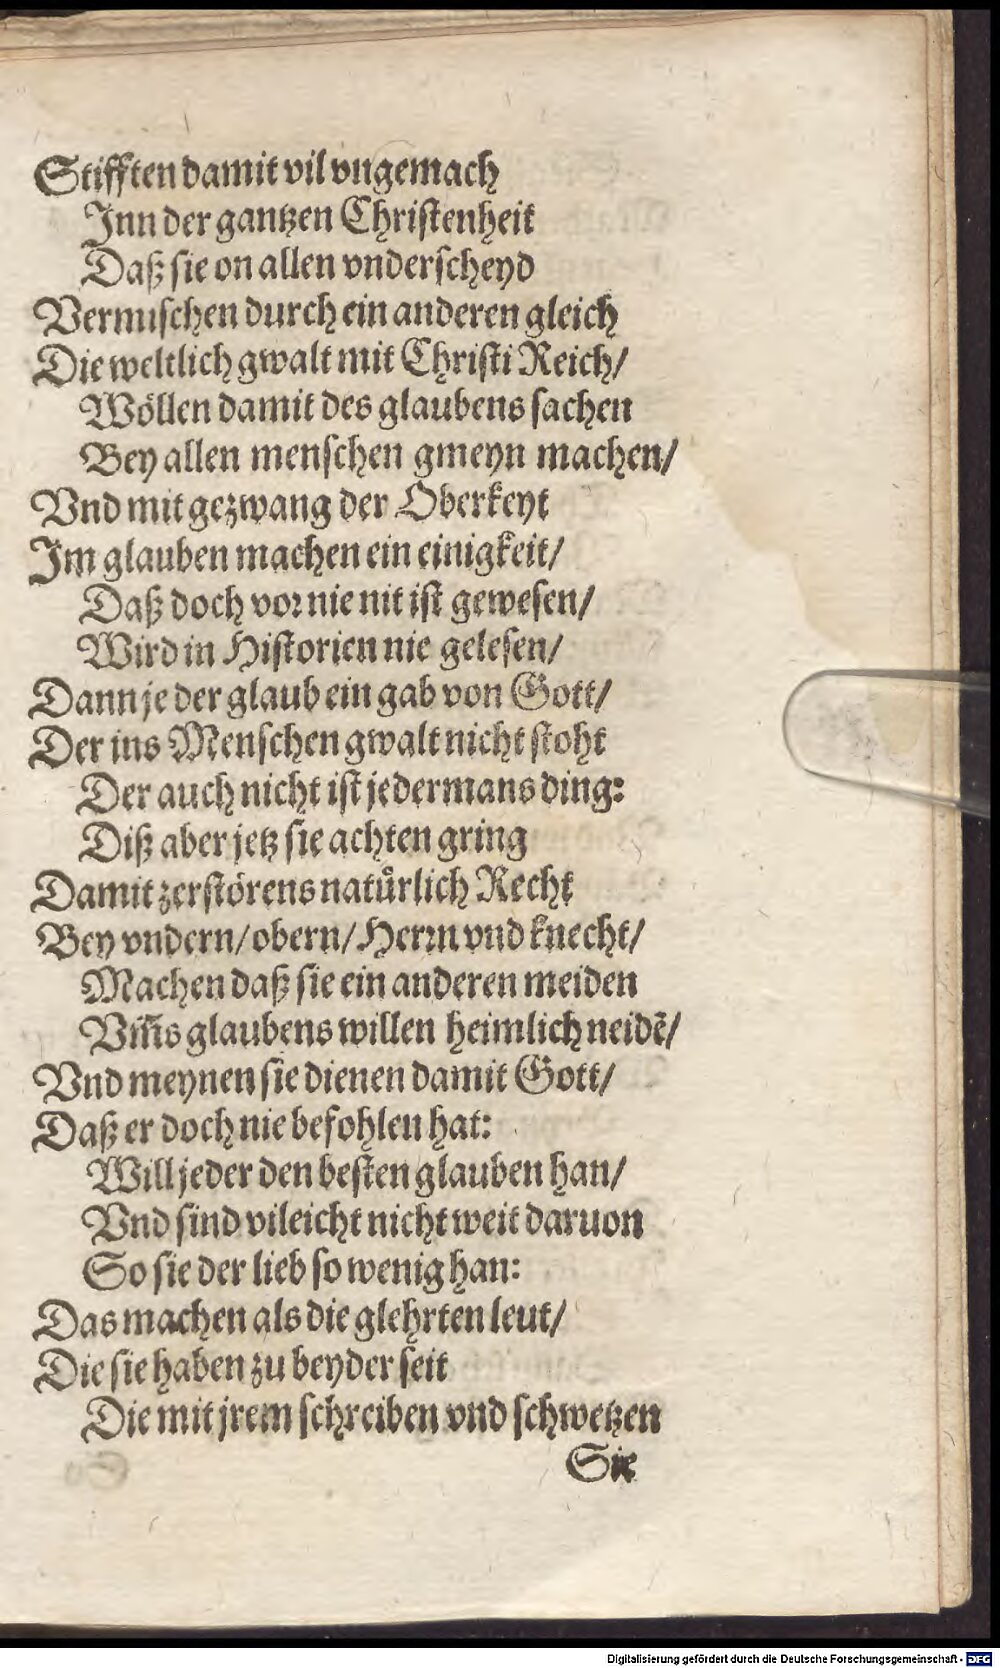 Stifften damit vil vngemach
Inn der gantzen Christenheit
Daß sie on allen vnderscheyd
Vermischen durch ein anderen gleich
Die weltlich gwalt mit Christi Reich/
Wöllen damit des glaubens sachen
Bey allen menschen gmeyn machen/
Vnd mit gezwang der Oberkeyt
Im glauben machen ein einigkeit/
Daß doch vor nie nit ist gewesen/
Wird in Historien nie gelesen/
Dann je der glaub ein gab von Gott/
Der ins Menschen gwalt nicht stoht
Der auch nicht ist jedermans ding:
Diß aber jetz sie achten gring
Damit zerstörens natuͤrlich Recht
Bey vndern/obern/Herrn vnd knecht/
Machen daß sie ein anderen meiden
Vm̃s glaubens willen heimlich neidẽ/
Vnd meynen sie dienen damit Gott/
Daß er doch nie befohlen hat:
Will jeder den besten glauben han/
Vnd sind vileicht nicht weit daruon
So sie der lieb so wenig han:
Das machen als die glehrten leut/
Die sie haben zu beyder seit
Die mit jrem schreiben vnd schwetzen
Sie
Digitalisierung gefördert durch die Deutsche Forschungsgemeinschaft - DFG